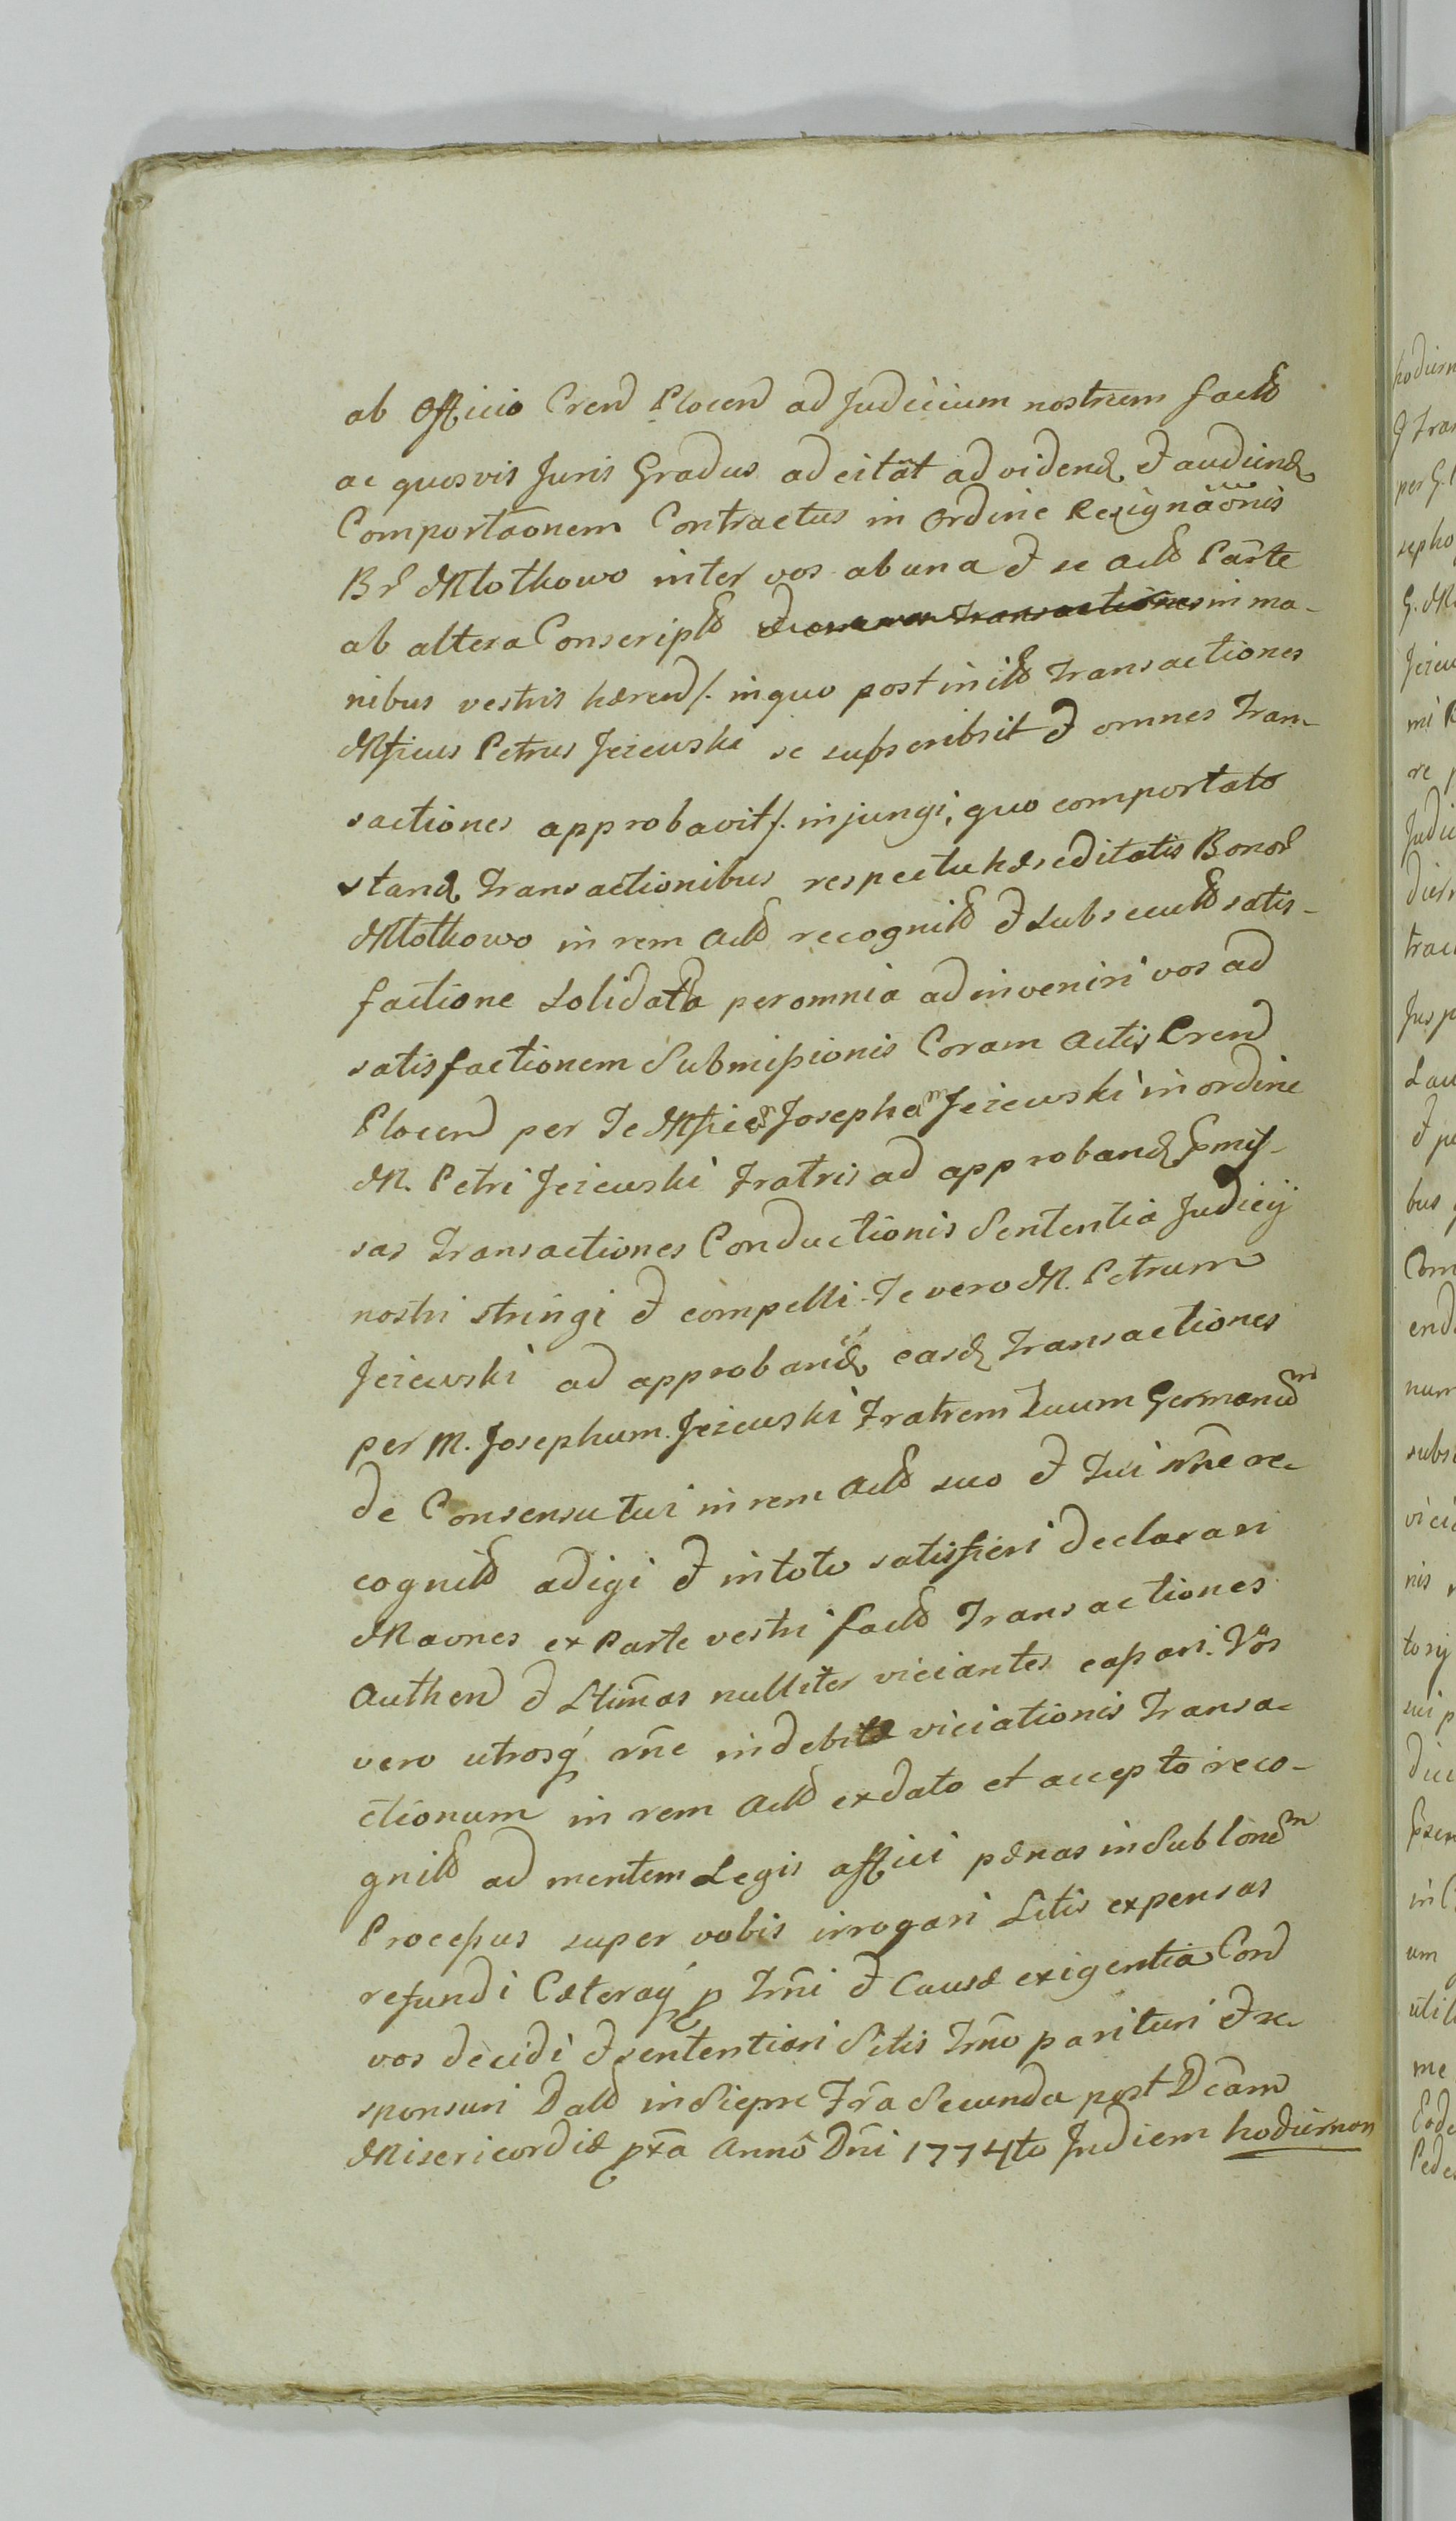 ab Officio Crend Plocend ad Judicium nostrum factd
ac quosvis Juris Gradus ad citãt ad vidend et audiend
Comportãonem Contractus in ordine Resignãonis
Br Młotkowo inter vos ab una et se actd Parte
ab altera Conscriptd et omnes Transactiones in ma-
nibus vestris hærend /. in quo post initd Transactiones
Mficus Petrus Jeżewski se subscribsit et omnes Tran-
sactiones approbavit /. injungi, quo comportato
stand Transactionibus respectu hæreditatis Bonor
Młotkowo in rem actd recognitd et subsecutd satis-
factione solidata per omnia adinveniri vos ad
satisfactionem Submissionis Coram Actis Crend
Plocend per Te Mficum Josephum Jeżewski in ordine
M. Petri Jeżewski Fratris ad approband præmis-
sas Transactiones Conductionis Sententia Judicij
nostri stringi et compelli. Te vero M. Petrum
Jeżewski ad approband easd Transactiones
per M. Josephum Jeżewski Fratrem Tuum Germanum
de Consensu tui in rem actd suo et Tui nñe re-
cognitd adigi et in toto satisfieri declarari
Maones ex Parte vestri factd Transactiones
Authend et Ltimãs nulliter viciantes cassari. Vos
vero utrosq rñe indebitæ viciationis Transa-
ctionum in rem actd ex dato et accepto reco-
gnitd ad mentem Legis affici pænas in Sublonem
Processus super vobis irrogari Litis expensas
refundi Cæteraq p Trñi et Causæ exigentia Cond
vos decidi et sententiari Sitis Trño parituri et re-
sponsuri Datd in Sierpc Frã Secunda post Dcam
Misericordiæ pxa Anno Dñi 1774to In diem hodiernan
hodiern
per G.
sepho
re